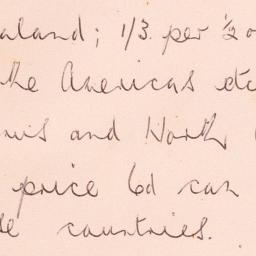 aland; 1/3. per ½ o
the Americas etc
and North
price 6d can
countries.